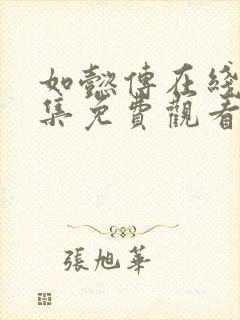 如懿傳在綫
集免費觀看
張旭華